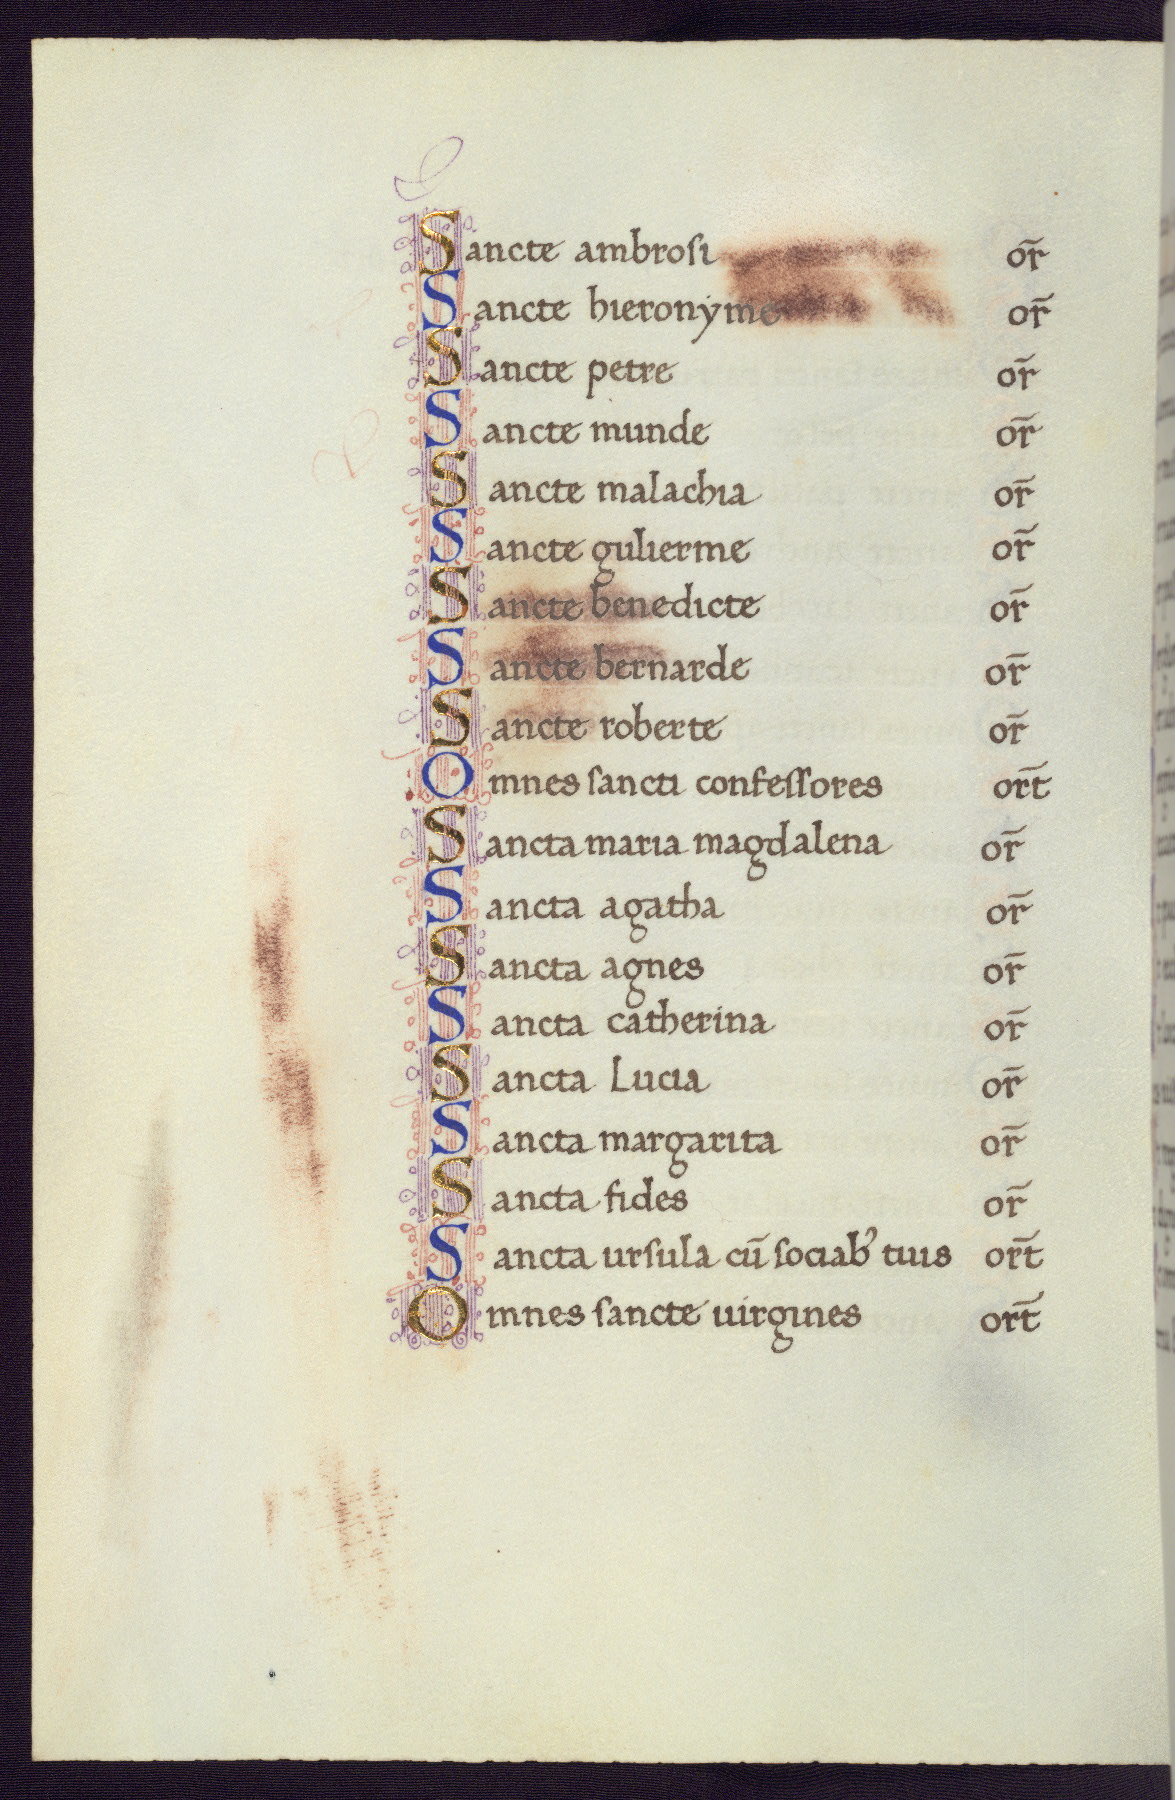 Sancte ambrosi or̄
Sancte hieronyme or̄
Sancte petre or̄
Sancte munde or̄
Sancte malachia or̄
Sancte gulierme or̄
Sancte benedicte or̄
Sancte bernarde or̄
Sancte roberte or̄
Omnes sancti confessores ort̄
Sancta maria magdalena or̄
Sancta agatha or̄
Sancta agnes or̄
Sancta catherina or̄
Sancta Lucia or̄
Sancta margarita or̄
Sancta fides or̄
Sancta ursula cū sociab᾿ tuis ort̄
Omnes sancte uirgines ort̄